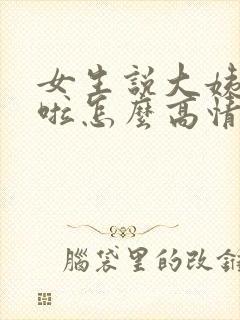 女生說大姨
啦怎麼高情
腦袋里的改錐